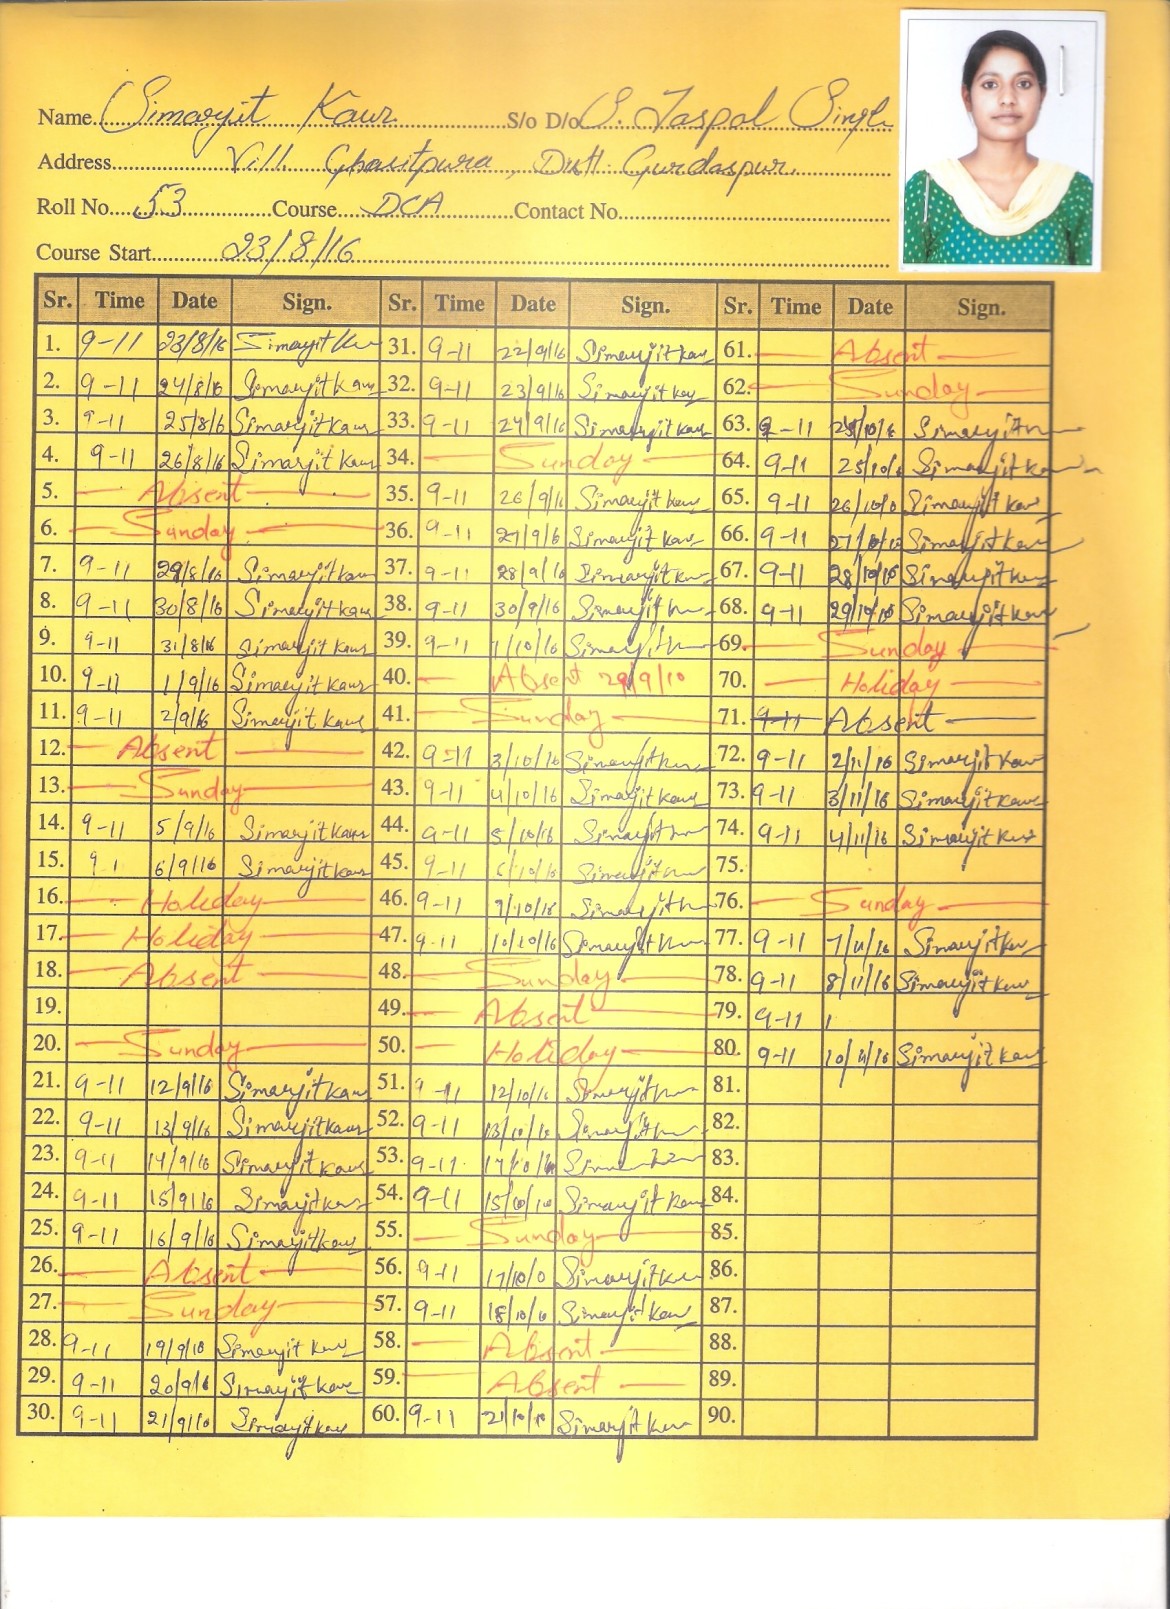 Name Simarjit Kaur S/o D/o S. Jaspal Singh
Address Vill. Ghasitpura, Distt. Gurdaspur.
Roll No. 53 Course DCA Contact No.
Course Start 23/8/16
Sr. Time Date Sign. Sr. Time Date Sign. Sr. Time Date Sign.
1. 9-11 23/8/16 Simarjit Kaur 31. 9-11 22/9/16 Simarjit Kaur 61. Absent
2. 9-11 24/8/16 Simarjit Kaur 32. 9-11 23/9/16 Simarjit Kaur 62. Sunday
3. 9-11 25/8/16 Simarjit Kaur 33. 9-11 24/9/16 Simarjit Kaur 63. 9-11 Simarjit
4. 9-11 26/8/16 Simarjit Kaur 34. Sunday 64. 9-11 25/10/ Simarjit Kaur
5. Absent 35. 9-11 26/9/16 Simarjit Kaur 65. 9-11 26/10/ Simarjit Kaur
6. Sunday 36. 9-11 27/9/16 Simarjit Kaur 66. 9-11 27/10/ Simarjit Kaur
7. 9-11 29/8/16 Simarjit Kaur 37. 9-11 28/9/16 Simarjit Kaur 67. 9-11 28/10/16 Simarjit Kaur
8. 9-11 30/8/16 Simarjit Kaur 38. 9-11 30/9/16 Simarjit 68. 9-11 29/10/16 Simarjit Kaur
9. 9-11 31/8/16 Simarjit Kaur 39. 9-11 1/10/16 Simarjit 69. Sunday
10. 9-11 1/9/16 Simarjit Kaur 40. Absent 29/9/10 70. Holiday
11. 9-11 2/9/16 Simarjit Kaur 41. Sunday 71. 9-11 Absent
12. Absent 42. 9-11 3/10/16 Simarjit 72. 9-11 2/11/16 Simarjit Kaur
13. Sunday 43. 9-11 4/10/16 Simarjit Kaur 73. 9-11 3/11/16 Simarjit Kaur
14. 9-11 5/9/16 Simarjit Kaur 44. 9-11 5/10/16 Simarjit 74. 9-11 4/11/16 Simarjit Kaur
15. 9 1 6/9/16 Simarjit Kaur 45. 9-11 6/10/16 Simarjit 75.
16. Holiday 46. 9-11 Simarjit 76. Sunday
17. Holiday 47. 9-11 10/10/16 Simarjit 77. 9-11 7/11/16 Simarjit Kaur
18. Absent 48. Sunday 78. 9-11 8/11/16 Simarjit Kaur
19. 49. Absent 79. 9-11 1
20. Sunday 50. Holiday 80. 9-11 10/11/16 Simarjit Kaur
21. 9-11 12/9/16 Simarjit Kaur 51. 9-11 12/10/16 Simarjit 81.
22. 9-11 13/9/16 Simarjit Kaur 52. 9-11 13/10/16 Simarjit 82.
23. 9-11 14/9/16 Simarjit Kaur 53. 9-11 83.
24. 9-11 15/9/16 Simarjit Kaur 54. 9-11 15/10/10 Simarjit Kaur 84.
25. 9-11 16/9/16 Simarjit Kaur 55. Sunday 85.
26. Absent 56. 9-11 17/10/0 Simarjit Kaur 86.
27. Sunday 57. 9-11 18/10/16 Simarjit Kaur 87.
28. 9-11 19/9/10 Simarjit Kaur 58. Absent 88.
29. 9-11 20/9/6 Simarjit Kaur 59. Absent 89.
30. 9-11 21/9/10 Simarjit Kaur 60. 9-11 21/10/10 Simarjit Kaur 90.